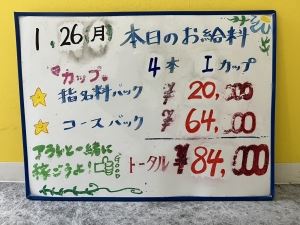 1.26(月) 本日のお給料
カップ。 4本 Iカップ
指名料バック ¥20,000
コースバック ¥64,000
アラレと一緒に
稼ごうよ!
トータル ¥84,000